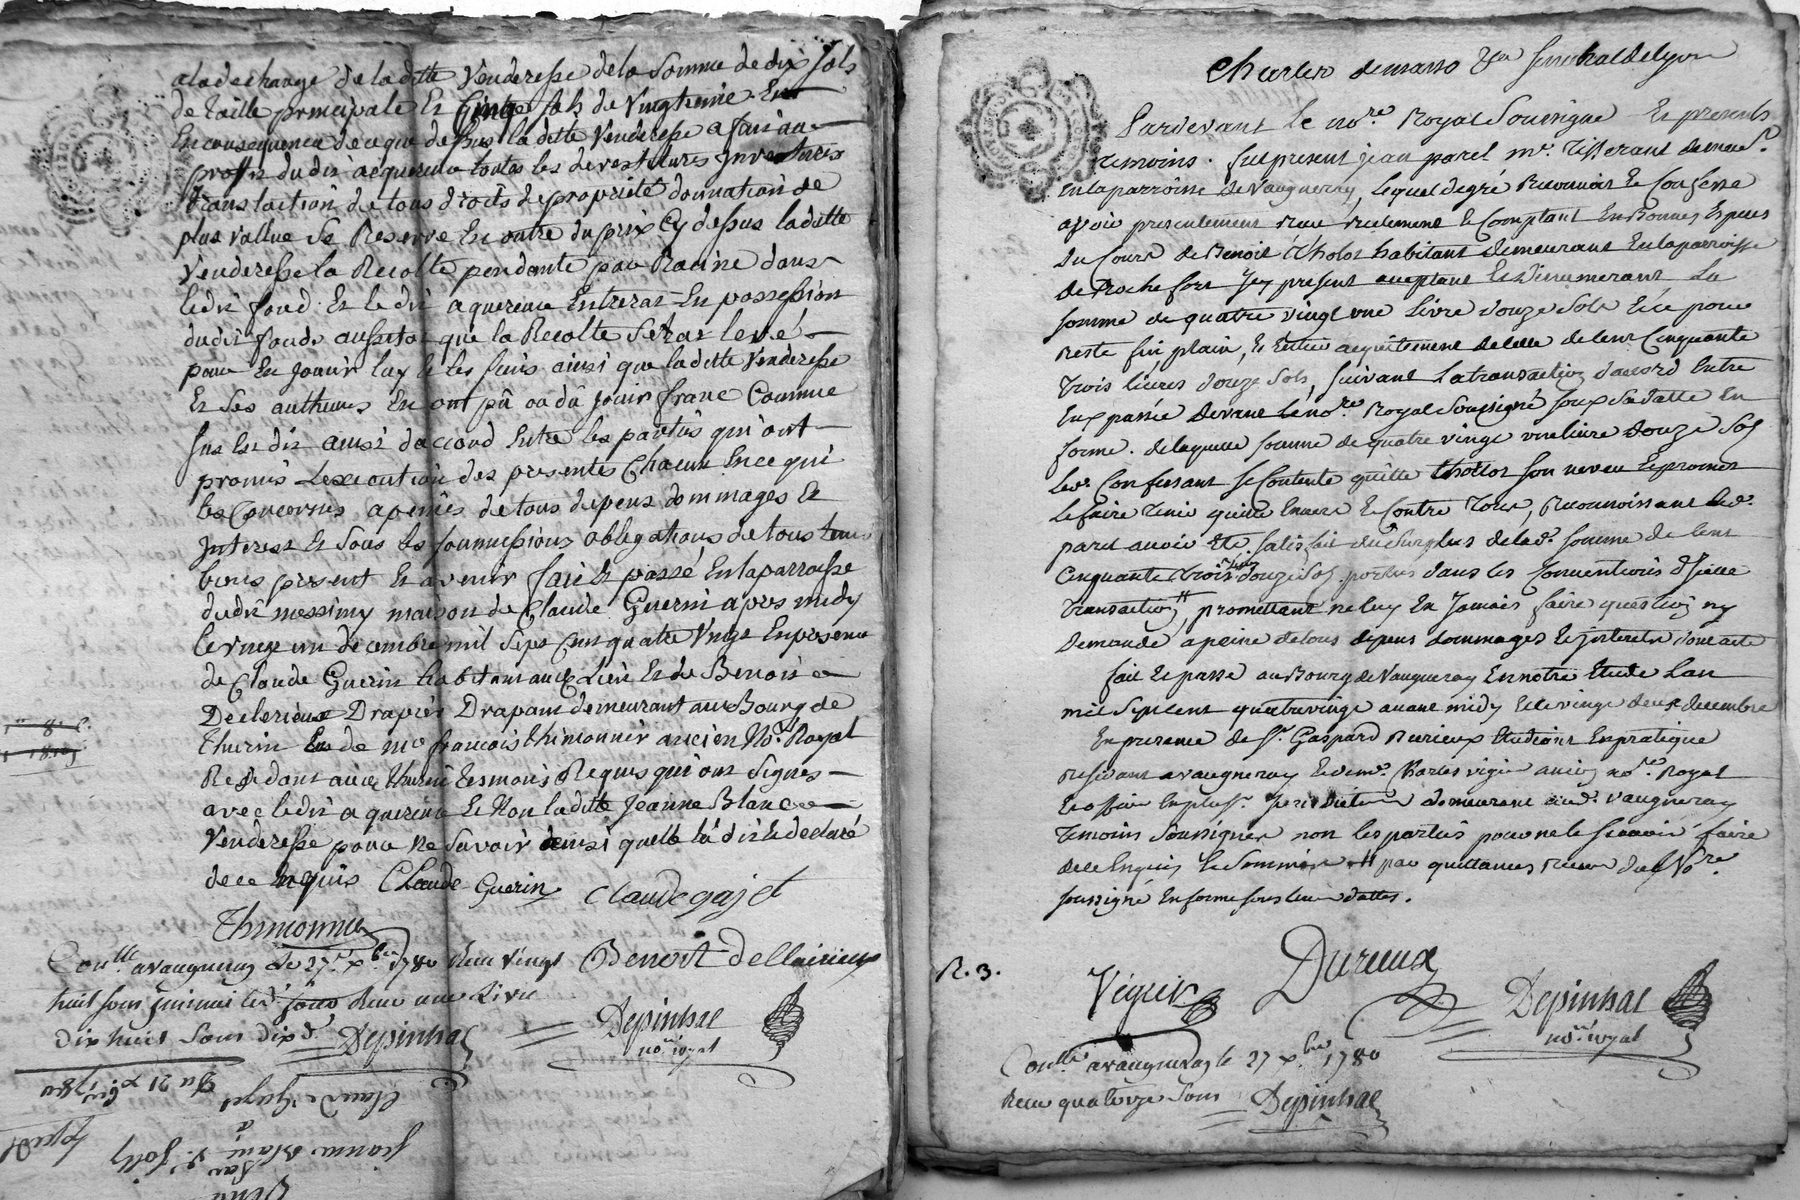 aladecharge de la ditte Venderesse de la Somme de dix Sols
de Taille principale Et Cinq sols de Vingtieme En
En consequence de ce que dessus la ditte Venderesse a fait au
proffit dudit acquereur toutes les devestitures Investures
translaction de tous droits de propriété donnation de
plus vallue Se Reserve En outre du prix Cy dessus laditte
Venderesse la Recolte pendante par Racine dans
ledit fond Et le dit aquereur Entrerat En possession
dudit fonds aussitot que la Recolte Serat levé
pour En Jouir luy Et les siens ainsi que laditte Venderesse
Et Ses autheurs En ont pû ou dû jouir franc Comme
sus Est dit ainsi d'accord Entre les parties qui ont
promis L'execution des presentes Chacun En ce qui
les Concernes apeines de tous depens dommages Et
Interest Et Sous les soumissions obligations de tous leurs
biens present Et avenir fait Et passé En la parroisse
dudit messimy maison de Claude Guerin apres midy
le vingt un decembre mil Sept Cent quatre Vingt En presence
de Claude Guerin habitant audit Lieu Et de Benoit
Declerieux Drapier Drapant demeurant au Bourg de
thurin Et de me francois thimonnier ancien No.re Royal
Residant audit thurin temoins Requis qui ont Signés
avec ledit aquereur Et Non laditte Jeanne Blanc
Venderesse pour Ne Savoir ainsi quelle la dit Et declaré
de ce Enquis Claude Guerin Claude gajet
Thimonnier
Con.lle a vaugneray le 27 x.bre 1780 Reçu vingt Benoit Dellairieux
huit sous Reçu une Livre
dix huit Sous dix d. Depinhac Depinhac
no.re royal
Du 21 x.bre 1780
Claude Gajet
a
Jeanne Blanc V. Jolly
Charles demasso Sénechal de Lyon
Pardevant Le no.re Royal Soussigné Et presents
temoins. fut present jean parel m.e Tisserant demeu.t
En la parroisse de Vaugneray, lequel de gré Reconnoit Et Confesse
avoir presentement Reçu Reelement Et Comptant En Bonnes Especes
du Cours de Benoit Tholot habitant demeurant En la parroisse
de Rochefort Icy present acceptant Et denumerant La
somme de quatre vingt une Livre douze Sols Et ce pour
Reste fin plain, Et Entier acquittement de celle de Cent Cinquante
Trois Livres douze Sols, suivant La transaction d'accord Entre
Eux passée devant le no.re Royal Soussigné sous Sa datte En
forme. de laquelle somme de quatre vingt une livre douze Sols
led. Confessant se Contente quitte tholot son neveu Et promet
Le faire tenir quitte Envers Et Contre Tous, Reconnoissant led.
parel avoir Eté satisfait du Surplus de lad. somme de Cent
Cinquante Trois livres douze Sols portés dans les Conventions d'icelle
transaction, promettant ne luy En Jamais faire question ny
demande a peine de tous depens dommages Et Interets dont acte
fait Et passé au Bourg de Vaugneray En notre Etude Lan
mil Sept Cent quatre vingt avant midy Et le vingt deux decembre
En presence de S.r Gaspard Durieux Etudiant En pratique
Residant a vaugneray Et de m.e Charles vigier ancien no.re Royal
demeurant aud. Vaugneray
Temoins Soussignés non les parties pour ne le Scavoir faire
de ce Enquis Et Sommés # par quittances Receu dud. No.re
soussigné En forme sous leurs dattes.
R. 3.
Véguir Dureux Depinhac
no.re royal
Con.lle a vaugneray le 27 x.bre 1780
Recu quatorze Sous Depinhac